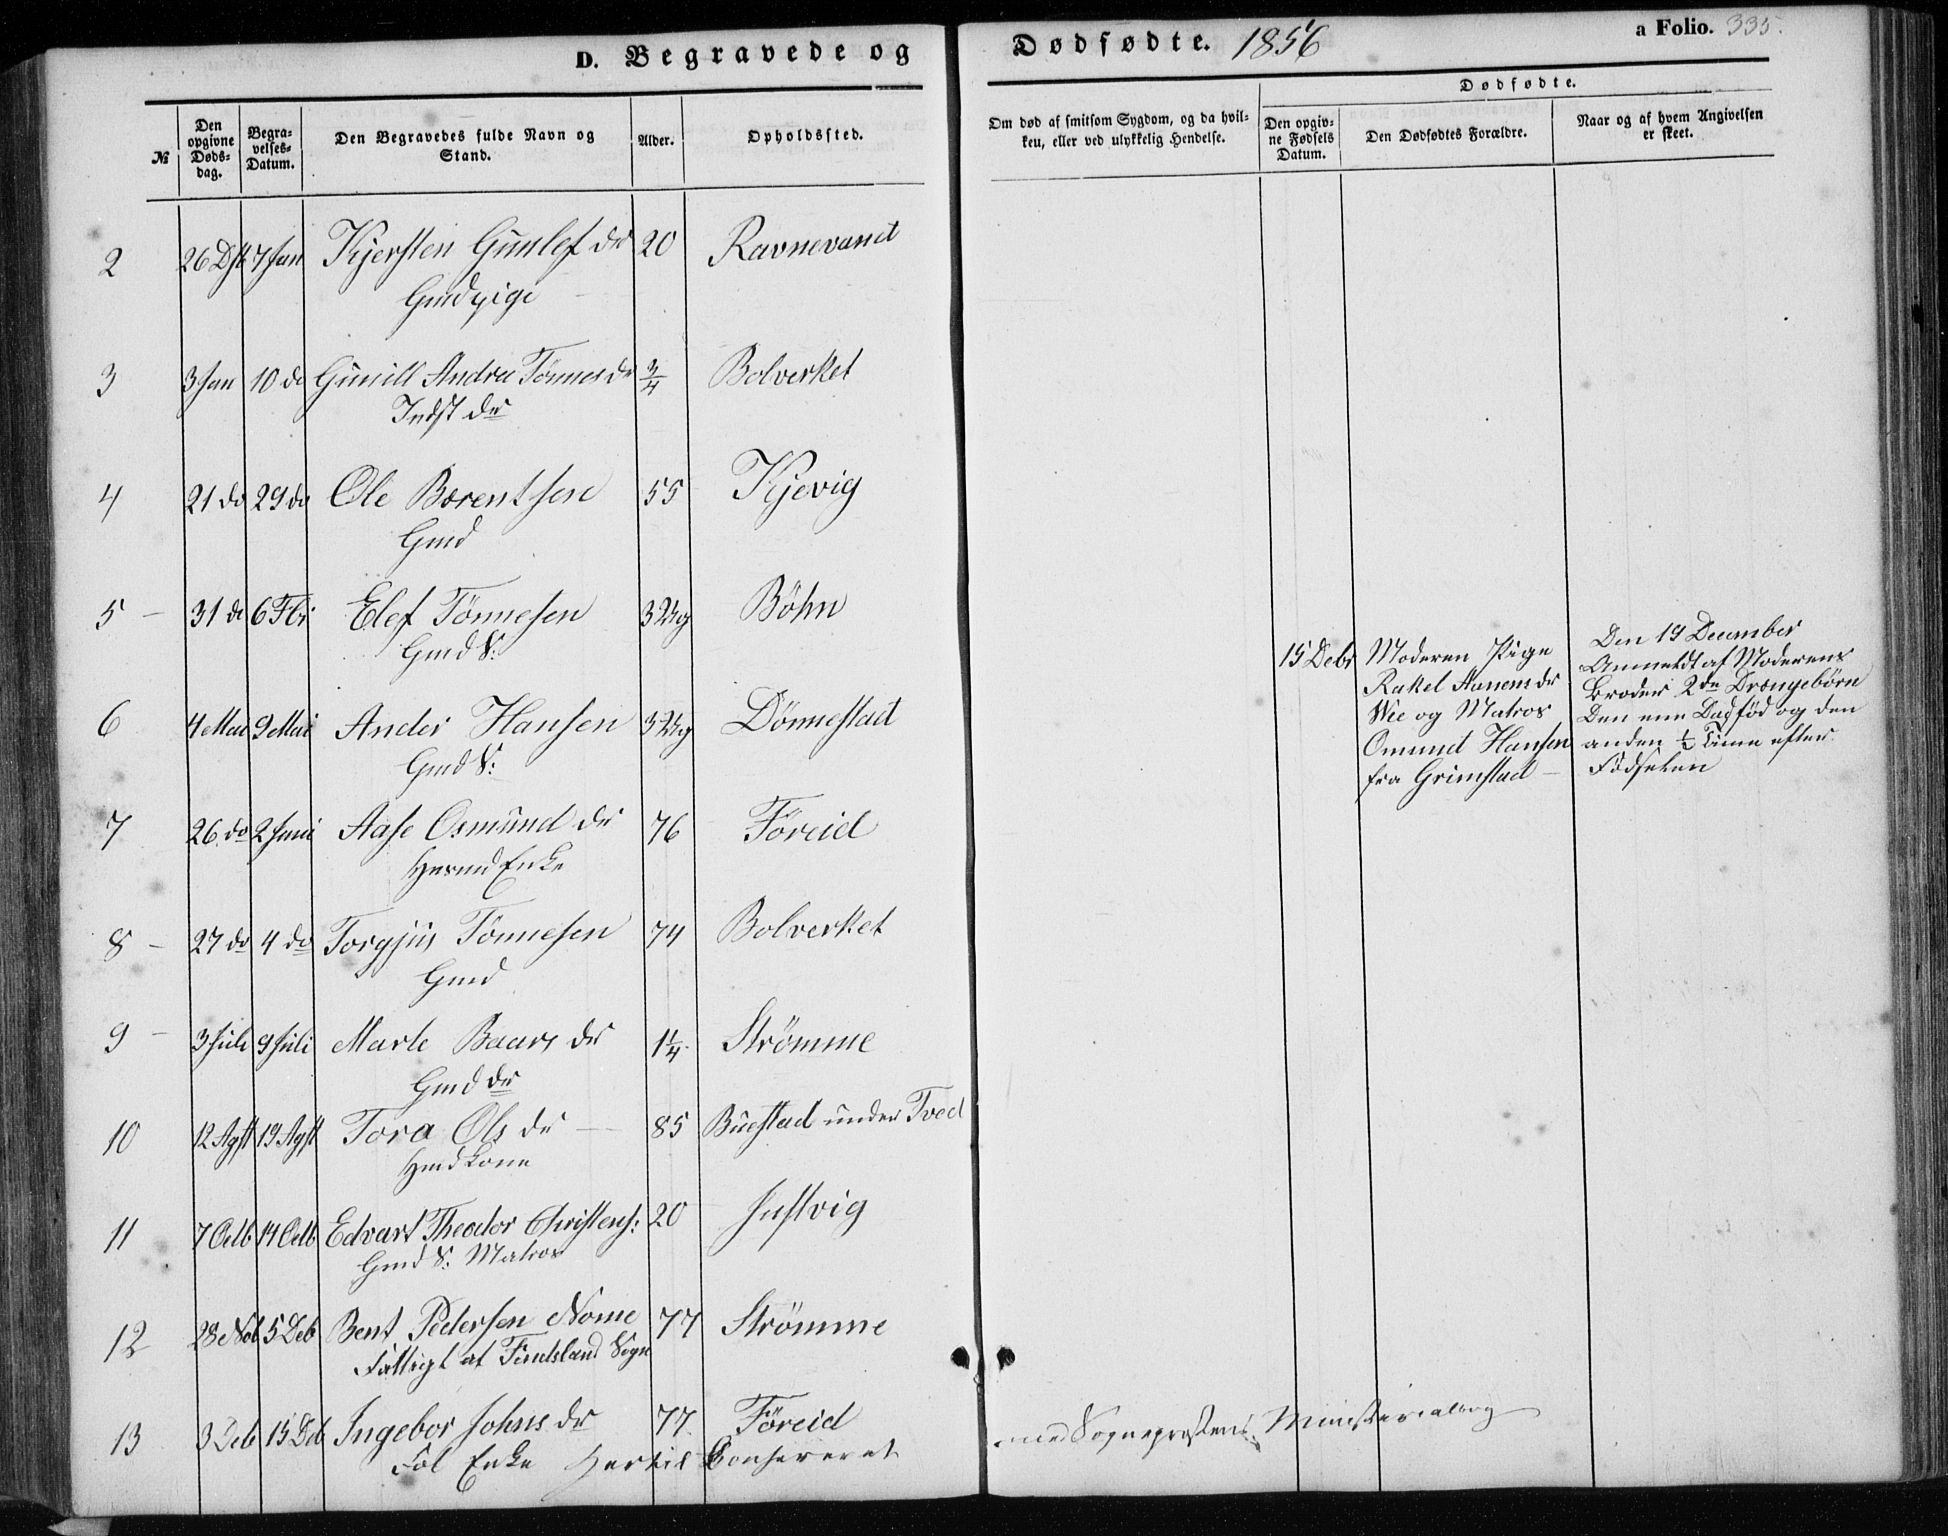 D. Begravede og Dødfødte. 1856
a Folio. 335.
№
Den opgivne Døds-dag.
Begra-velses-Datum.
Den Begravedes fulde Navn og Stand.
Alder.
Opholdssted.
Om død af smitsom Sygdom, og da hvil-ken, eller ved ulykkelig Hendelse.
Dødfødte.
Den opgiv-ne Fødsels Datum.
Den Dødfødtes Forældre.
Naar og af hvem Angivelsen er skeet.
2 7 Jan Kjersten Gunlef dr 20 Ravnevand
Gmdpige
3 3 Jan 10 do Gunild Andrea Tønnes dr 3/4 Bolverket
Indst dr
4 21 do 29 do Ole Berentsen 55 Kjevig
Gmd
5 – 31 do 6 Fbr Elef Tönnesen 3 Uger Böhn
Gmd S:
6 4 Mai 9 Mai Ander Hansen 3 Uger Dönnestad
Gmd S:
7 26 do 2 Juni Aase Osmund dr 76 Föreid
Husmd Enke
8 – 27 do 4 do Torgjus Tönnesen 74 Bolverket
Gmd
9 – 3 Juli 9 Juli Marte Baars dr 1 1/4 Strömme
Gmd dr
10 12 Agst 19 Agst Tora Ols dr 85 Buestad under Tved
Hmdkone
11 7 Octb 14 Octb Edvart Theodor Christens: 20 Justvig
Gmd S: Matros
12 28 Nob 5 Deb Bent Pedersen Nome 77 Strömme
Fattigl af Findsland Sogn
13 3 Deb 15 Deb Ingebor Johns dr 77 Föreid
Fol Enke Hertil Confereret med Sogneprestens Ministerialbog
15 Debr
Moderen Pige
Rakel Aanens dr
Wee og Matros
Omund Hansen
fra Grimstad –
Den 19 December
Anmeldt af Moderens
Broder 2de Drengebörn
Den ene Dødföd og den
anden 1/2 Time efter
Födselen